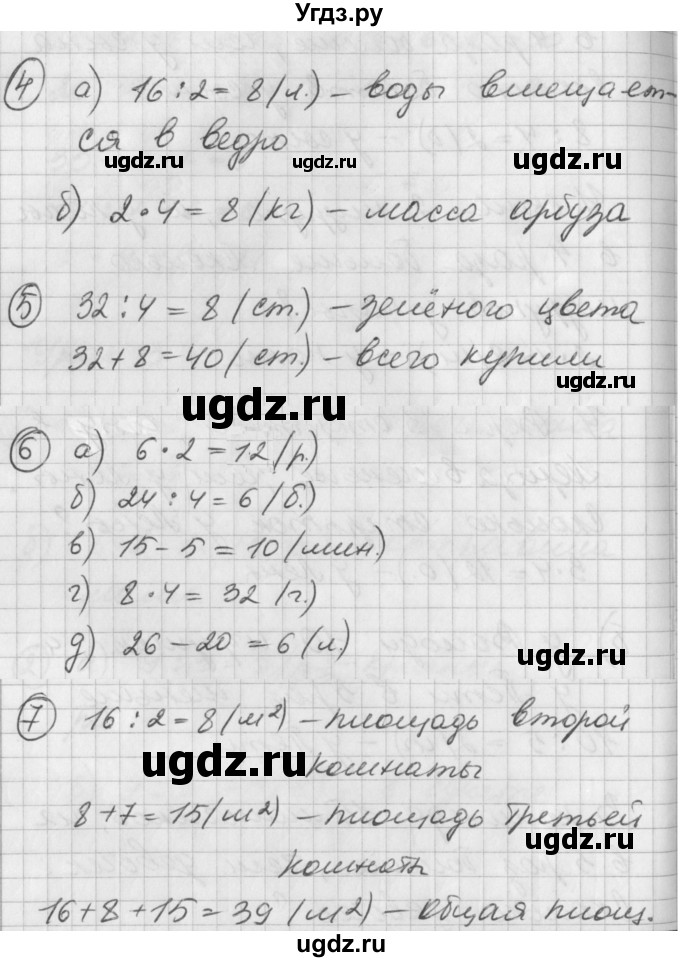 Угдз.ру
④ а) 16 : 2 = 8 (л.) – воды вмещает-
ся в ведро
ugdz.ru ugdz.ru ugdz.ru
б) 2 · 4 = 8 (кг) – масса арбуза
ugdz.ru
⑤ 32 : 4 = 8 (ст.) – зелёного цвета
32 + 8 = 40 (ст.) – всего купили
ugdz.ru ugdz.ru
⑥ а) 6 · 2 = 12 (р.)
б) 24 : 4 = 6 (б.)
в) 15 – 5 = 10 (мин.)
г) 8 · 4 = 32 (г.)
д) 26 – 20 = 6 (л.)
ugdz.ru
⑦ 16 : 2 = 8 (м²) – площадь второй
ugdz.ru комнаты
8 + 7 = 15 (м²) – площадь третьей
комнаты
16 + 8 + 15 = 39 (м²) – общая площ.
ugdz.ru